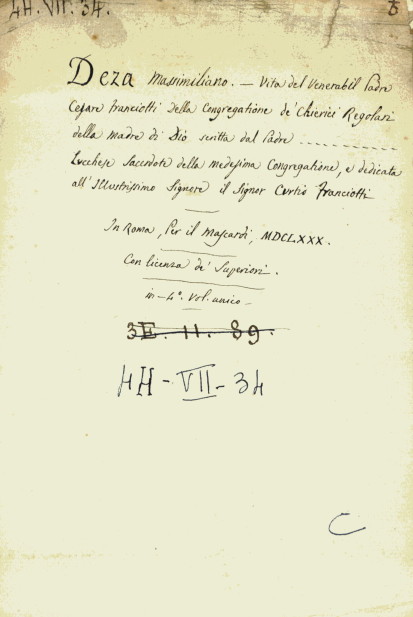 4H. VII. 34.
Deza Massimiliano. — Vita del Venerabil Padre
Cesare Franciotti della Congregatione de' Chierici Regolari
della Madre di Dio scritta dal Padre . . . . . . . . . . .
Lucchese Sacerdote della medesima Congregatione, e dedicata
all'Illustrissimo Signore il Signor Curtio Franciotti
In Roma, Per il Mascardi, MDCLXXX.
Con licenza de' Superiori.
in-4°. Vol. unico
3E. 11. 89.
4H-VII-34
C